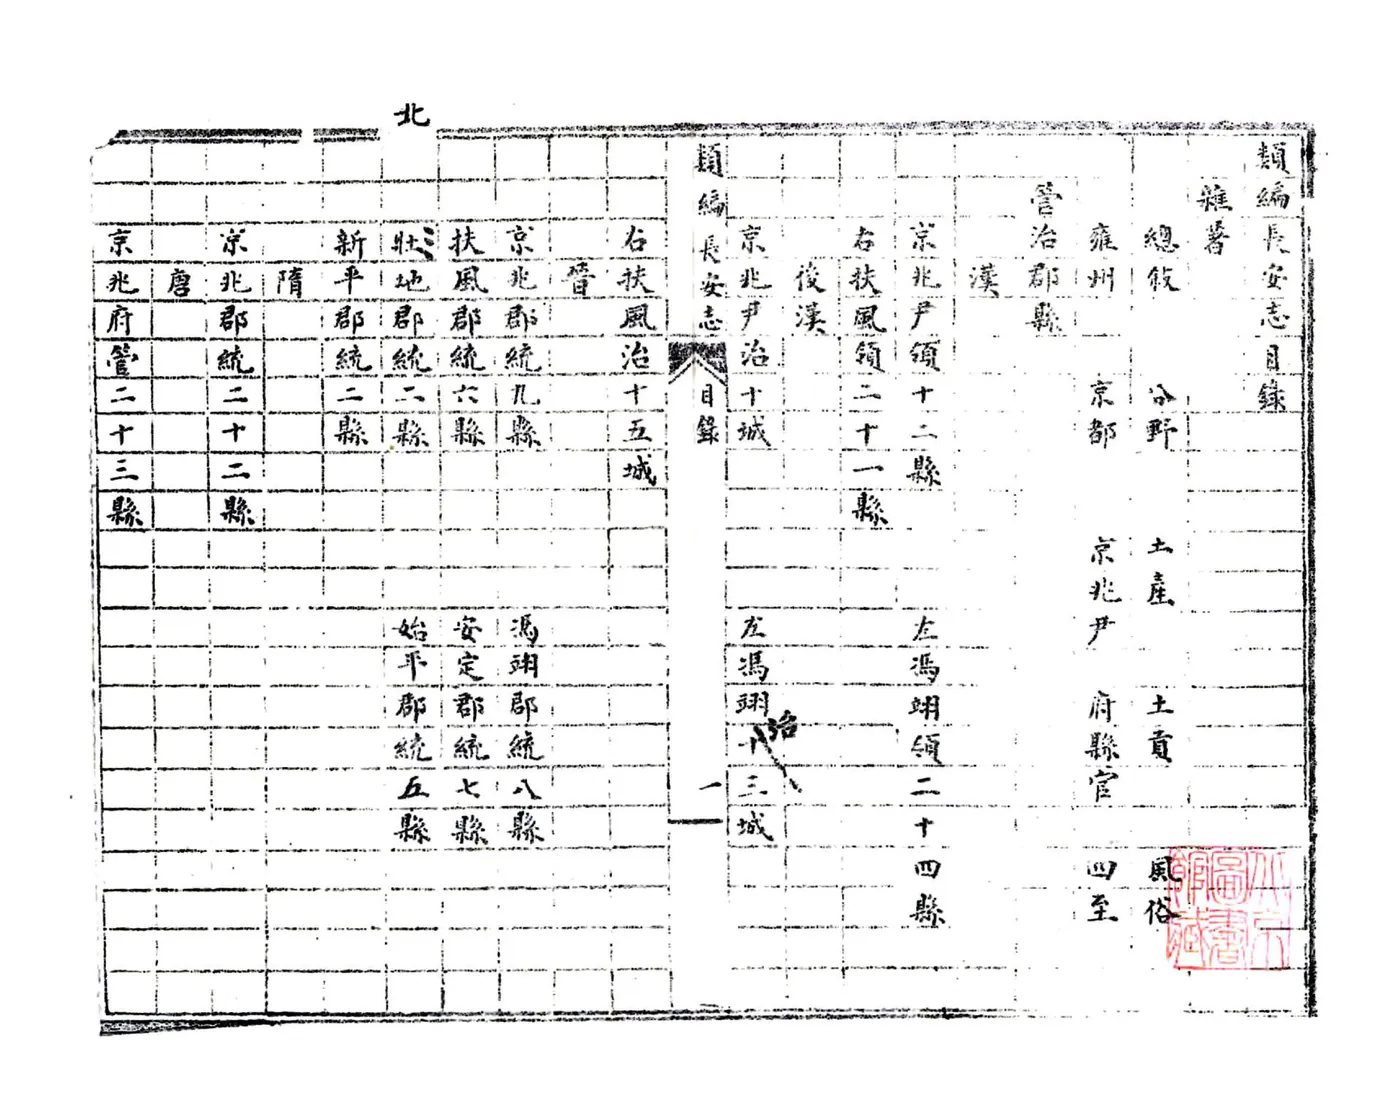 類編長安志目錄
雜著
總敘 分野 土產 土貢 風俗
雍州 京都 京兆尹 府縣官 四至
管治郡縣
漢
京兆尹領十二縣 左馮翊領二十四縣
右扶風領二十一縣
後漢
京兆尹治十城 左馮翊十三城
治
類編長安志 目錄 一
右扶風治十五城
晉
京兆郡統九縣 馮翊郡統八縣
扶風郡統六縣 安定郡統七縣
北
壯地郡統二縣 始平郡統五縣
新平郡統二縣
隋
京兆郡統二十二縣
唐
京兆府管二十三縣
北京圖書館藏